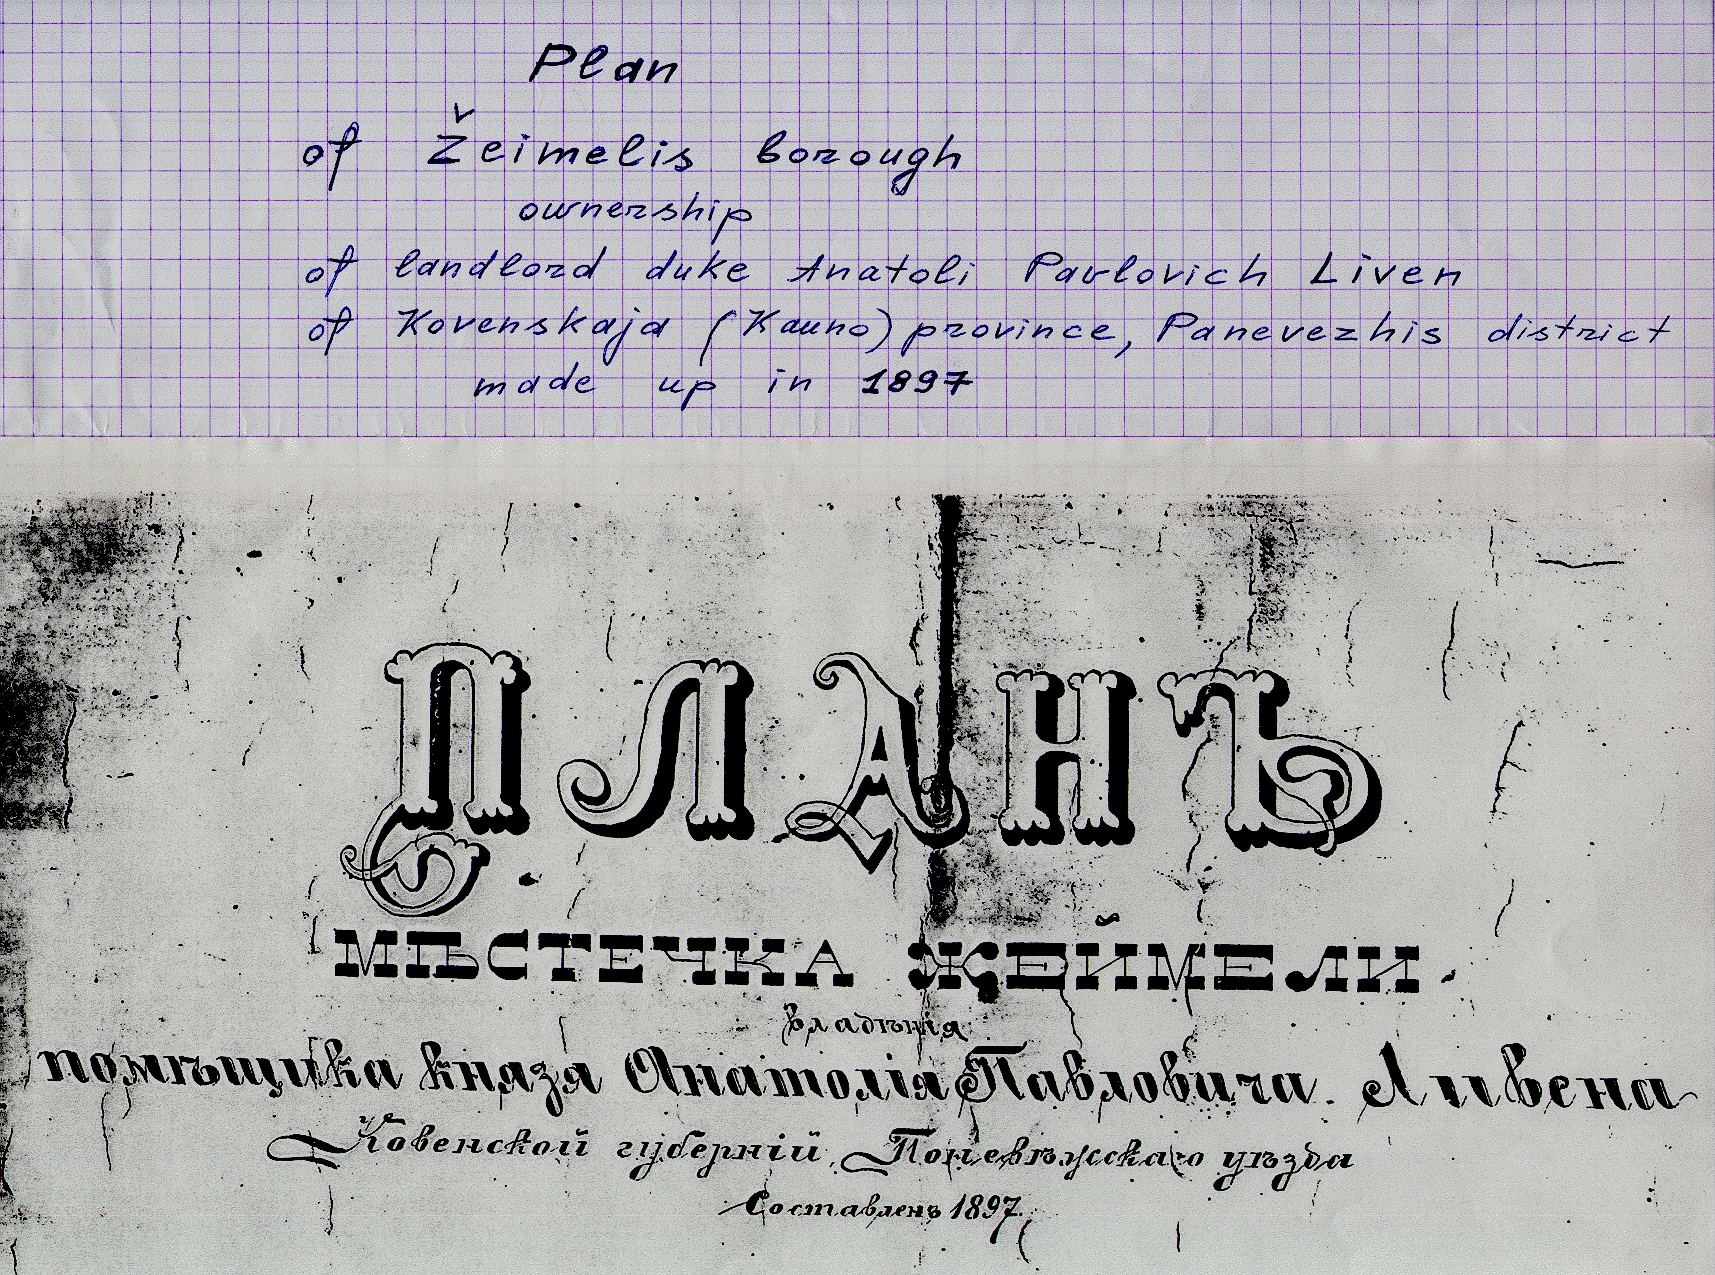 Plan
of Žeimelis borough
ownership
of landlord duke Anatoli Pavlovich Liven
of Kovenskaja (Kauno) province, Panevezhis district
made up in 1897
ПЛАНЪ
МѢСТЕЧКА ЖЕЙМЕЛИ
владѣнія
помѣщика князя Анатолія Павловича. Ливена
Ковенской губерніи, Поневѣжскаго уѣзда
Составленъ 1897